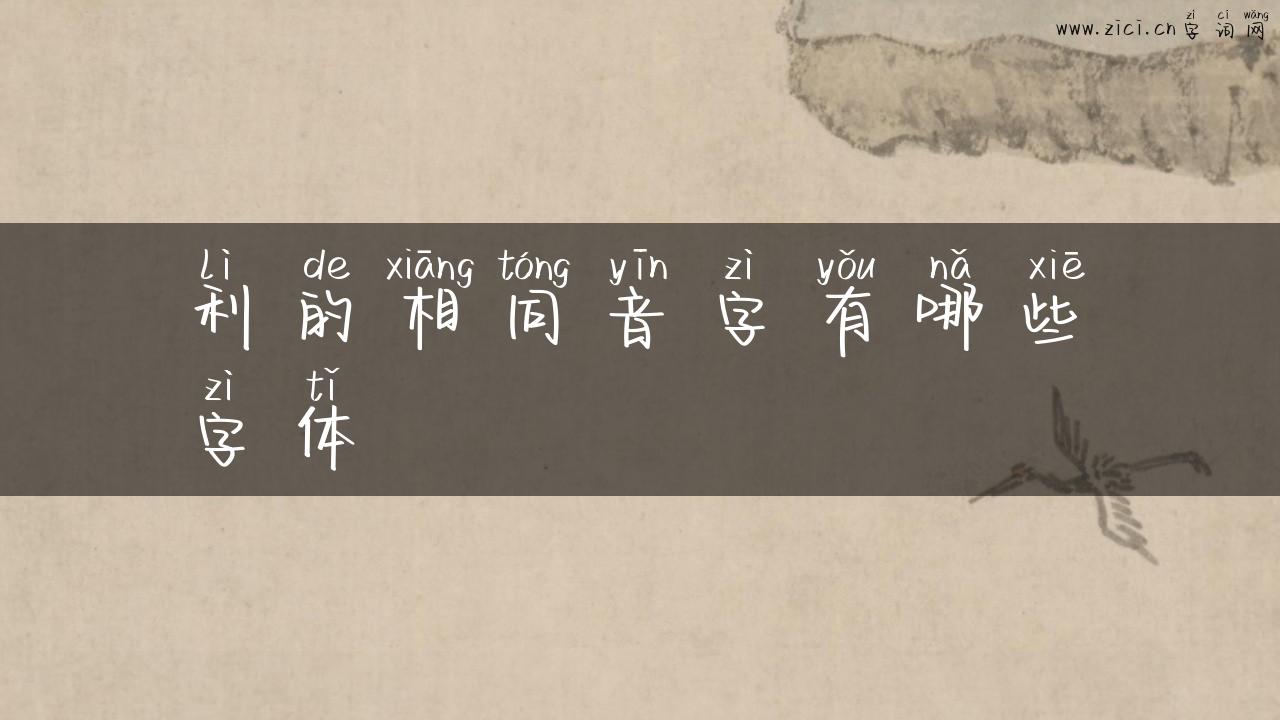 zì cí wǎng
www.zici.cn 字 词 网
lì de xiāng tóng yīn zì yǒu nǎ xiē
利 的 相 同 音 字 有 哪 些
zì tǐ
字 体